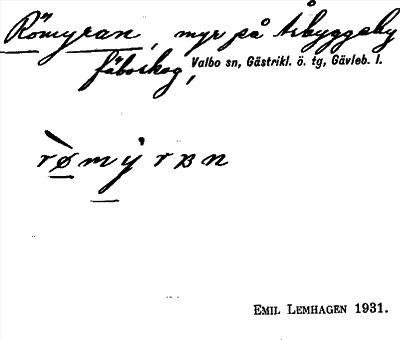 Römyran, myr på Åbyggeby
fäboskog, Valbo sn, Gästrikl. ö. tg, Gävleb. l.
rømýrʙn
EMIL LEMHAGEN 1931.